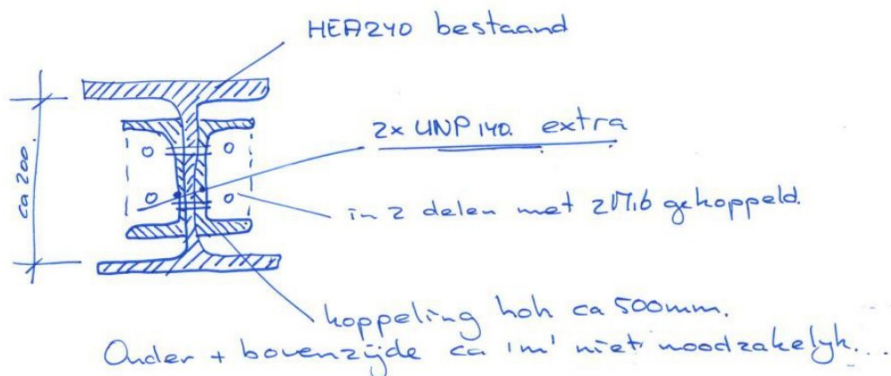 HEA240 bestaand
2x UNP140. extra
ca 200.
in 2 delen met 2M16 gekoppeld.
koppeling hoh ca 500mm.
Onder + bovenzijde ca 1m' niet noodzakelijk...